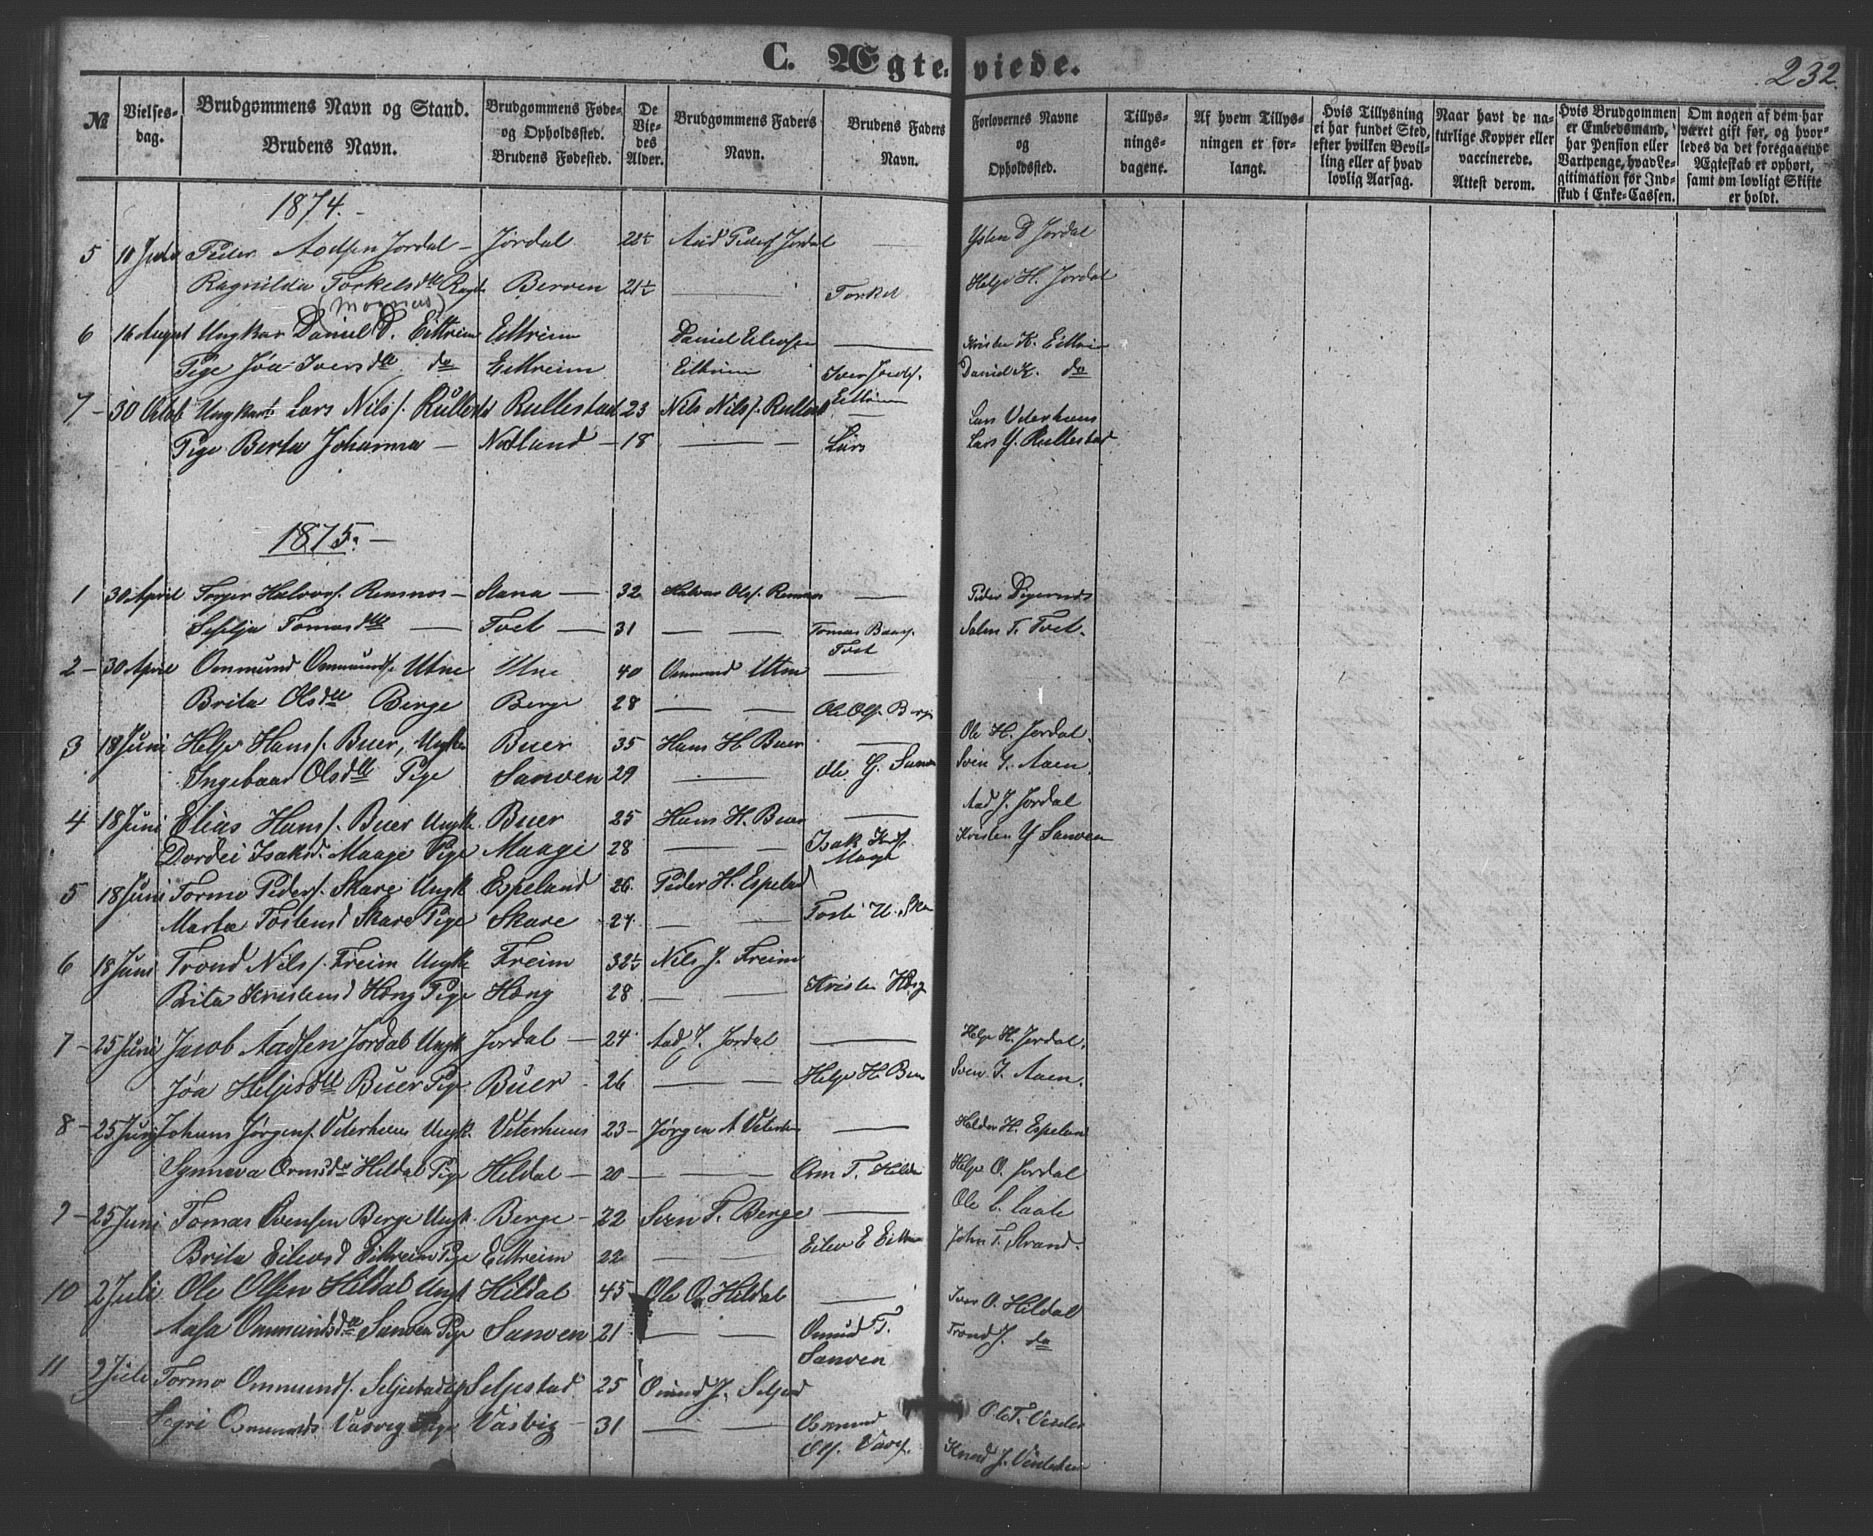 C. Ægteviede.
232.
№
Vielses-dag.
Brudgommens Navn og Stand.
Brudens Navn.
Brudgommens Føde- og Opholdssted.
Brudens Fødested.
De Vie-des Alder.
Brudgommens Faders Navn.
Brudens Faders Navn.
Forlovernes Navne og Opholdssted.
Tillys-nings-dagene.
Af hvem Tillys-ningen er for-langt.
Hvis Tillysning ei har fundet Sted, efter hvilken Bevil-ling eller af hvad lovlig Aarsag.
Naar havt de na-turlige Kopper eller vaccinerede. Attest derom.
Hvis Brudgommen er Embedsmand, har Pension eller Vartpenge, hvad Le-gitimation for Ind-skud i Enke-Cassen.
Om nogen af dem har været gift før, og hvor-ledes da det foregaaende Ægteskab er ophørt, samt om lovligt Skifte er holdt.
1874.
5 Peder Aadsen Jordal Jordal Aad Peders Jordal Ysten D Jordal
Ragnilda Torkelsdtr Berven Torkel Helge H. Jordal
(Magnus)
6 16 August Ungkar Daniel D. Eittreim Eittreim Daniel Eilevsen Kristen K. Eittreim
Pige Jøa Iversdtr do Eittreim Eittreim Iver Daniel K. do
Eittreim
7 - 30 Octob Ungkar Lars Nils. Rullestad Rullestad 23 Nils Nils. Rullestad Lars Veterhuus
Pige Berta Johanna - Nodland - 18 Lars Lars Y. Rullestad
1875.
1 30 April Torger Halvors. Remnos - 32 Halvor Ols. Remnos Peder
Tomasdtr Tvet 31 Tomas Tvet.
Tvet
2 - 30 April Ommund Ommunds. Utne Utne 40 Ommund Utne
Brita Olsdtr Berge Berge 28 Ole Ols. Berge
3 18 Juni Helge Hans. Buer, Ungkar Buer 35 Hans H. Buer Ole H. Jordal.
Ingebaar Olsdtr Pige Sanven 29 Ole G. Sanven Sven J. Aaen.
4 18 Juni Elias Hans. Buer Ungk. Buer 25 Hans H. Buer Aad J. Jordal
Dordei Isaksd. Maage Pige Maage 28 Isak Kristen Y Sanven
Maage
5 18 Juni Tormo Peders. Skare Ungk. Espeland 26 Peder H. Espeland
Marta Tostensd Skare Pige Skare 24
6 18 Juni Trond Nils. Freim Ungk Freim 32½ Nils J. Freim
Brita Kristensd Høng Pige Høng 28 Kristen Høng
7 - 25 Juni Jacob Aadsen Jordal Ungk Jordal - 24 Aad J. Jordal Helge H. Jordal.
Jøa Helgesdtr Buer Pige Buer - 26 Helge H. Buer Sven J. Aaen.
8 - 25 Juni Johans Jørgens. Veterhuus Ungk. Veterhuus 23 - Jørgen A Veterhuus Haldor H. Espeland
Synneva Ormsdtr Hildal Pige Hildal - 20 Orm T. Hildal Helge O. Jordal
9 - 25 Juni Tomas Svensen Berge Ungk. Berge - 22 Sven T. Berge Ole
Brita Eilevsd Eittreim Pige Eittreim 22 Eilev E Eittreim John T. Strand.
10 2 Juli Ole Olsen Hildal Ungk Hildal 45 Ole O. Hildal Iver O. Hildal
Aasa Ommundsdtr Sanven Pige Sanven 21 Omund T. Trond J. do
Sanven
11 2 Juli Tormo Ommunds. Seljestad Seljestad 25 Omund J. Seljestad
Segri Osmunds Vasvig Pige Vasvig 31 Osmund
Ols. Knud J.